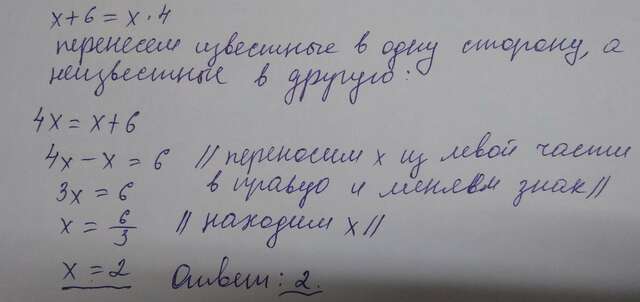 x+6 = x·4
перенесем известные в одну сторону, а
неизвестные в другую:
4x = x+6
4x-x = 6 // переносим x из левой части
3x = 6 в правую и меняем знак //
x = 6/3 // находим x //
x = 2 Ответ: 2.